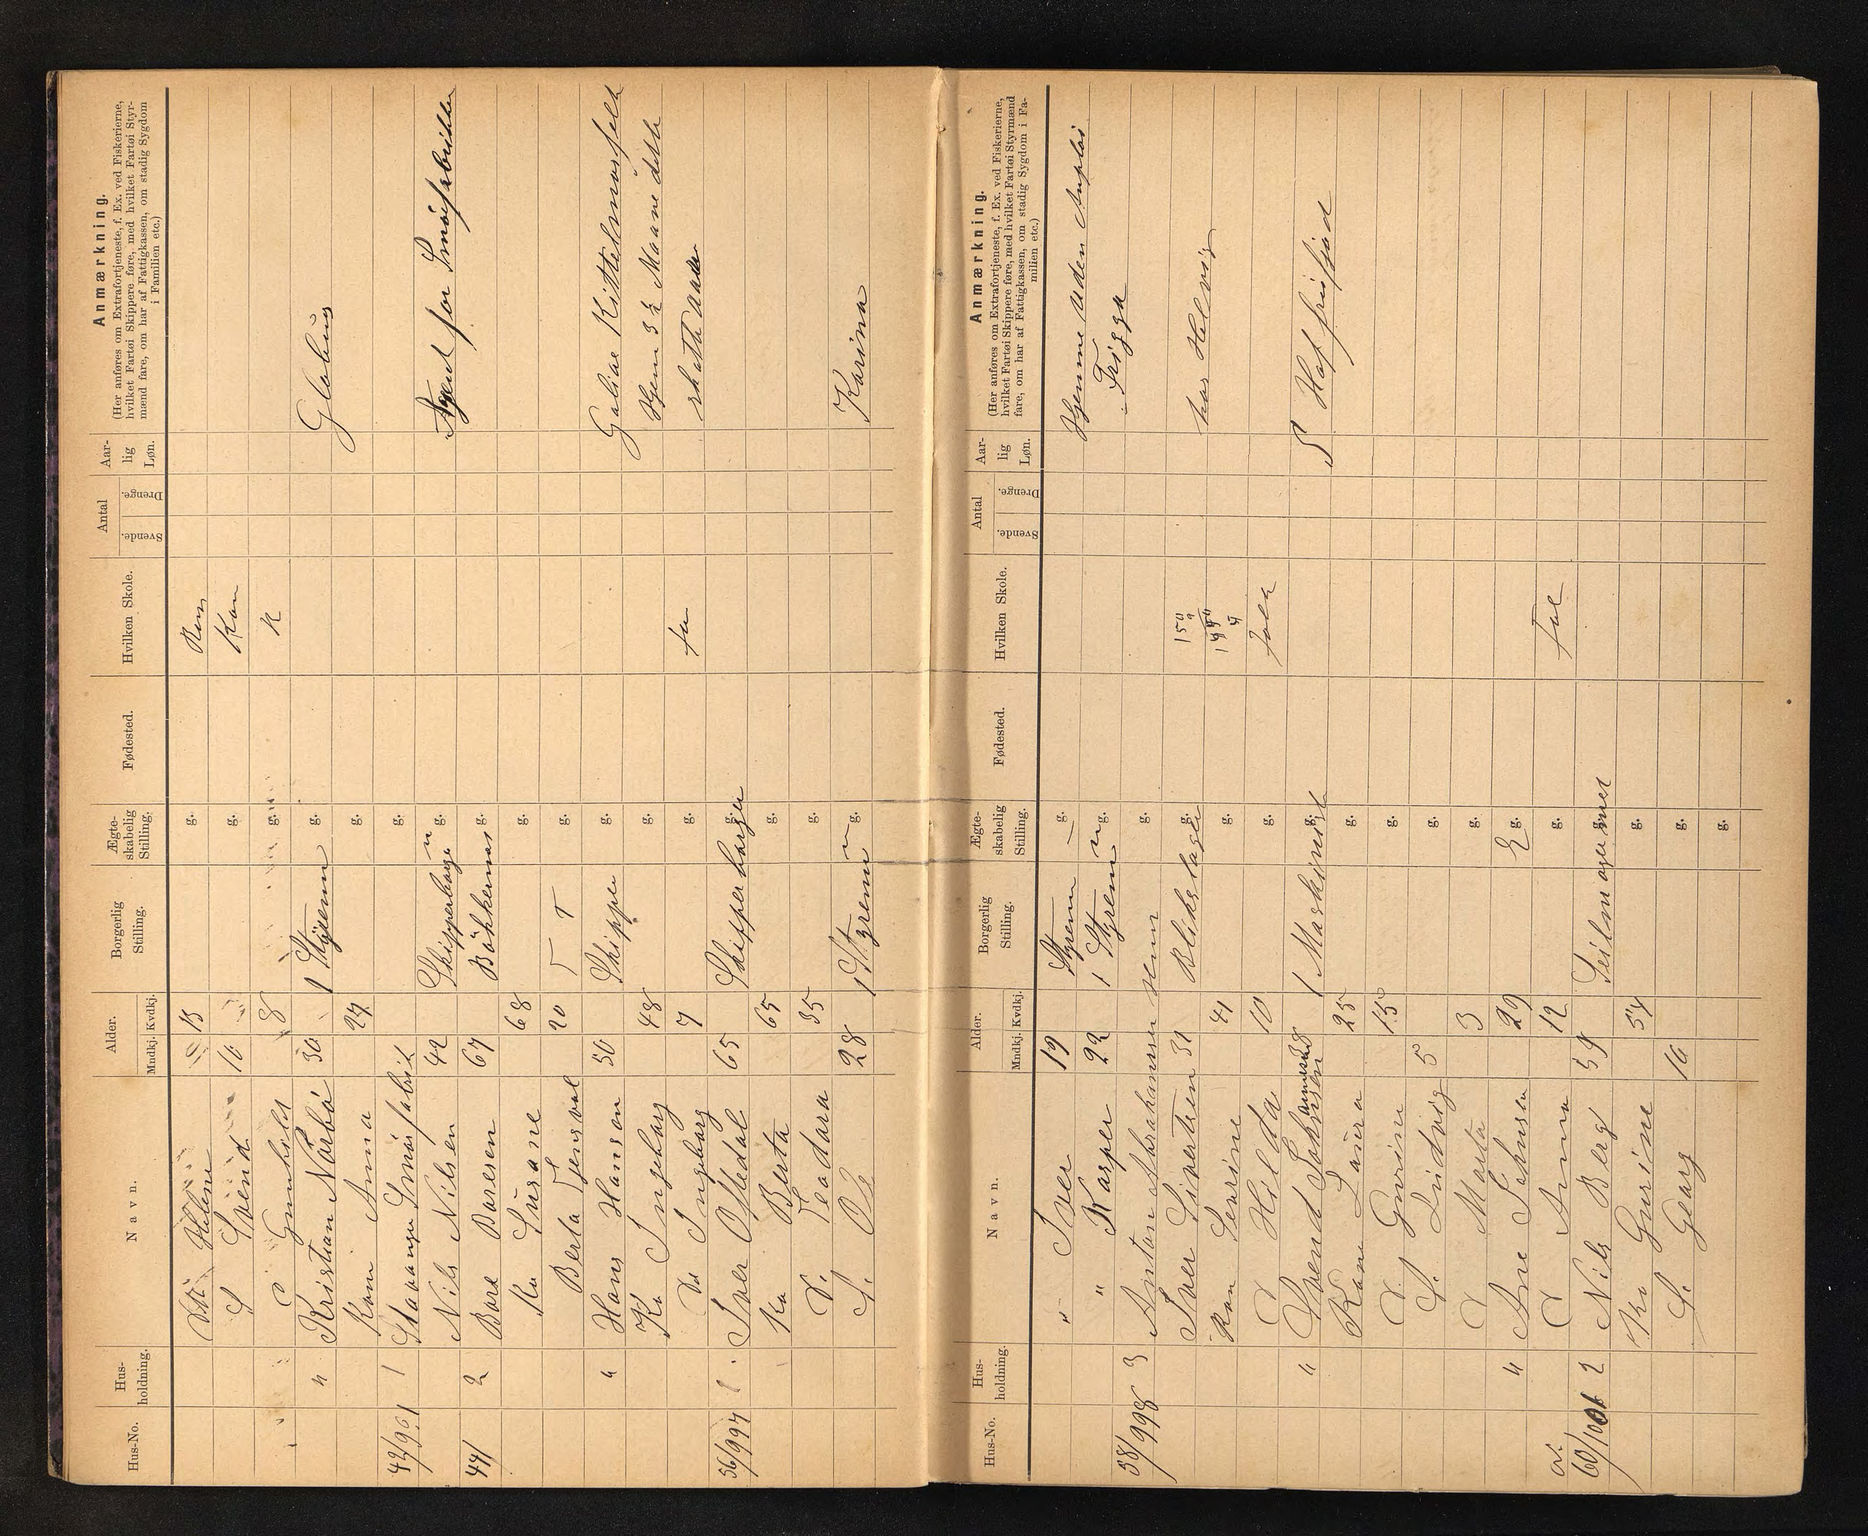 Hus-No. Hus-holdning. Navn. Alder. Mndkj. Kvdkj. Borgerlig Stilling. Ægte-skabelig Stilling. Fødested. Hvilken Skole. Antal Svende. Drenge. Aar-lig Løn. Anmærkning.
(Her anføres om Extrafortjeneste, f. Ex. ved Fiskerierne, hvilket Fartøi Skippere føre, med hvilket Fartøi Styrmænd fare, om har af Fattigkassen, om stadig Sygdom i Familien etc.)
Helene 13 g.
S Svend 10 g. Kon
D Gunhild 8 g. K
" Kristian Nörbö 30 1 Styrem g. Globus
Kone Anna 27 g.
42/991 1 Stavanger Smörfabrik g.
Nils Nilsen 42 Skipperborger g. Agent for Smörfabrikken
44/ 2 Bore Boresen 67 Bökkermes g.
Ko Susane 68 g.
Berta Tjensvol 20 T T g.
" Hans Hansen 50 Skipper g. Galiae Kittelmorsfelt
Ko Ingeborg 48 g. Hjem 3 ½ Maane dette
Da Ingeborg 7 g. skatte aar
56/997 1 Iver Oftedal 65 Skipperborger g.
Ko Berta 65 g.
D. Teodora 35 g.
S. Ole 28 1 Styrem g. Karina
Hus-No. Hus-holdning. Navn. Alder. Mndkj. Kvdkj. Borgerlig Stilling. Ægte-skabelig Stilling. Fødested. Hvilken Skole. Antal Svende. Drenge. Aar-lig Løn. Anmærkning.
(Her anføres om Extrafortjeneste, f. Ex. ved Fiskerierne, hvilket Fartøi Skippere føre, med hvilket Fartøi Styrmænd fare, om har af Fattigkassen, om stadig Sygdom i Familien etc.)
" Iver 19 Styrem g. Hjemme uden Anploi
" Kasper 22 1 Styrem g. Frigga
58/998 3 Anton Abrahamsen g.
Iver Sivertsen 31 Blikslager g. 150 har Helvig
Kon Sevrine 41 g.
D Hilda 10 g. Folk
" Svend Johnsen 38 1 Maskinist g. S Haf
Kone Laura 25 g.
D. Gurine 15 g.
S. Ludvig 5 g.
D Marta 3 g.
" Ane Johnsen 29 E g.
D Anna 12 g. Fol
ov. 60/1001 2 Nils Berg 59 Seilmagermes g.
Ko Gurine 54 g.
S. Georg 10 g.
g.